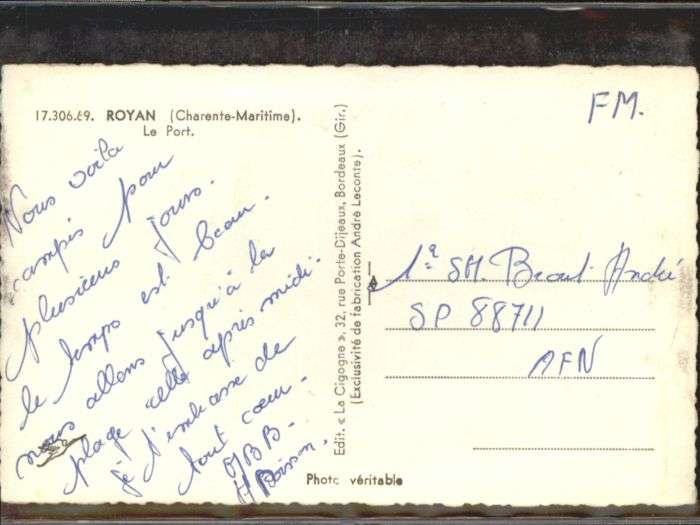 17.306.69. ROYAN (Charente-Maritime).
Le Port.
Nous voila
campés pour
plusieurs jours.
le temps est beau.
nous allons jusqu'à la
plage cette après midi.
je t'embrasse de
tout coeur.
Edit. « La Cigogne », 32, rue Porte-Dijeaux, Bordeaux (Gir.)
(Exclusivité de fabrication André Leconte).
FM.
André
SP 88711
AFN
Photo véritable